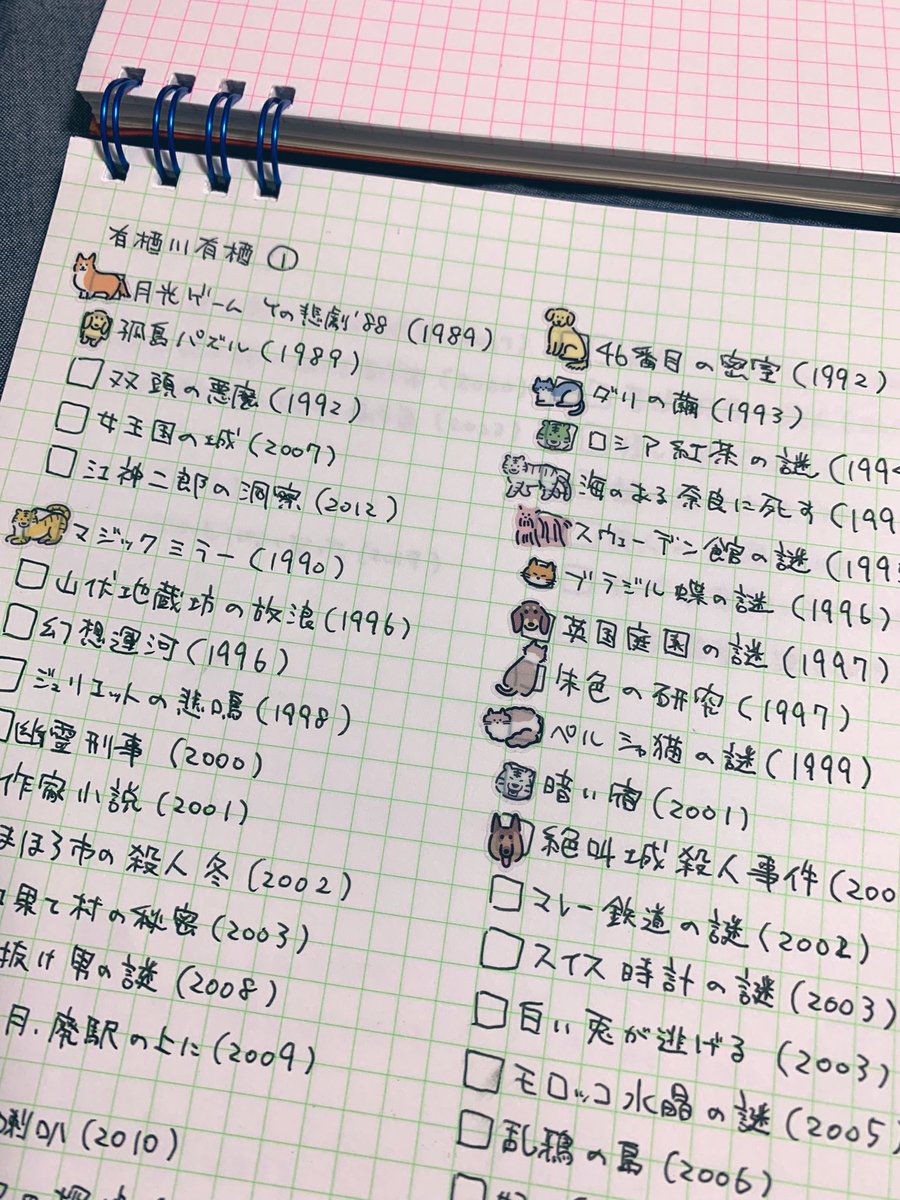 有栖川有栖 ①
月光ゲーム Yの悲劇'88 (1989)
孤島パズル (1989)
双頭の悪魔 (1992)
女王国の城 (2007)
江神二郎の洞察 (2012)
マジックミラー (1990)
山伏地蔵坊の放浪 (1996)
幻想運河 (1996)
ジュリエットの悲鳴 (1998)
幽霊刑事 (2000)
作家小説 (2001)
まほろ市の殺人 冬 (2002)
果て村の秘密 (2003)
抜け男の謎 (2008)
月、廃駅の上に (2009)
喇叭 (2010)
46番目の密室 (1992)
ダリの繭 (1993)
ロシア紅茶の謎 (199
海のある奈良に死す (199
スウェーデン館の謎 (199
ブラジル蝶の謎 (1996)
英国庭園の謎 (1997)
朱色の研究 (1997)
ペルシャ猫の謎 (1999)
暗い宿 (2001)
絶叫城殺人事件 (200
マレー鉄道の謎 (2002)
スイス時計の謎 (2003)
白い兎が逃げる (2003)
モロッコ水晶の謎 (2005)
乱鴉の島 (2006)